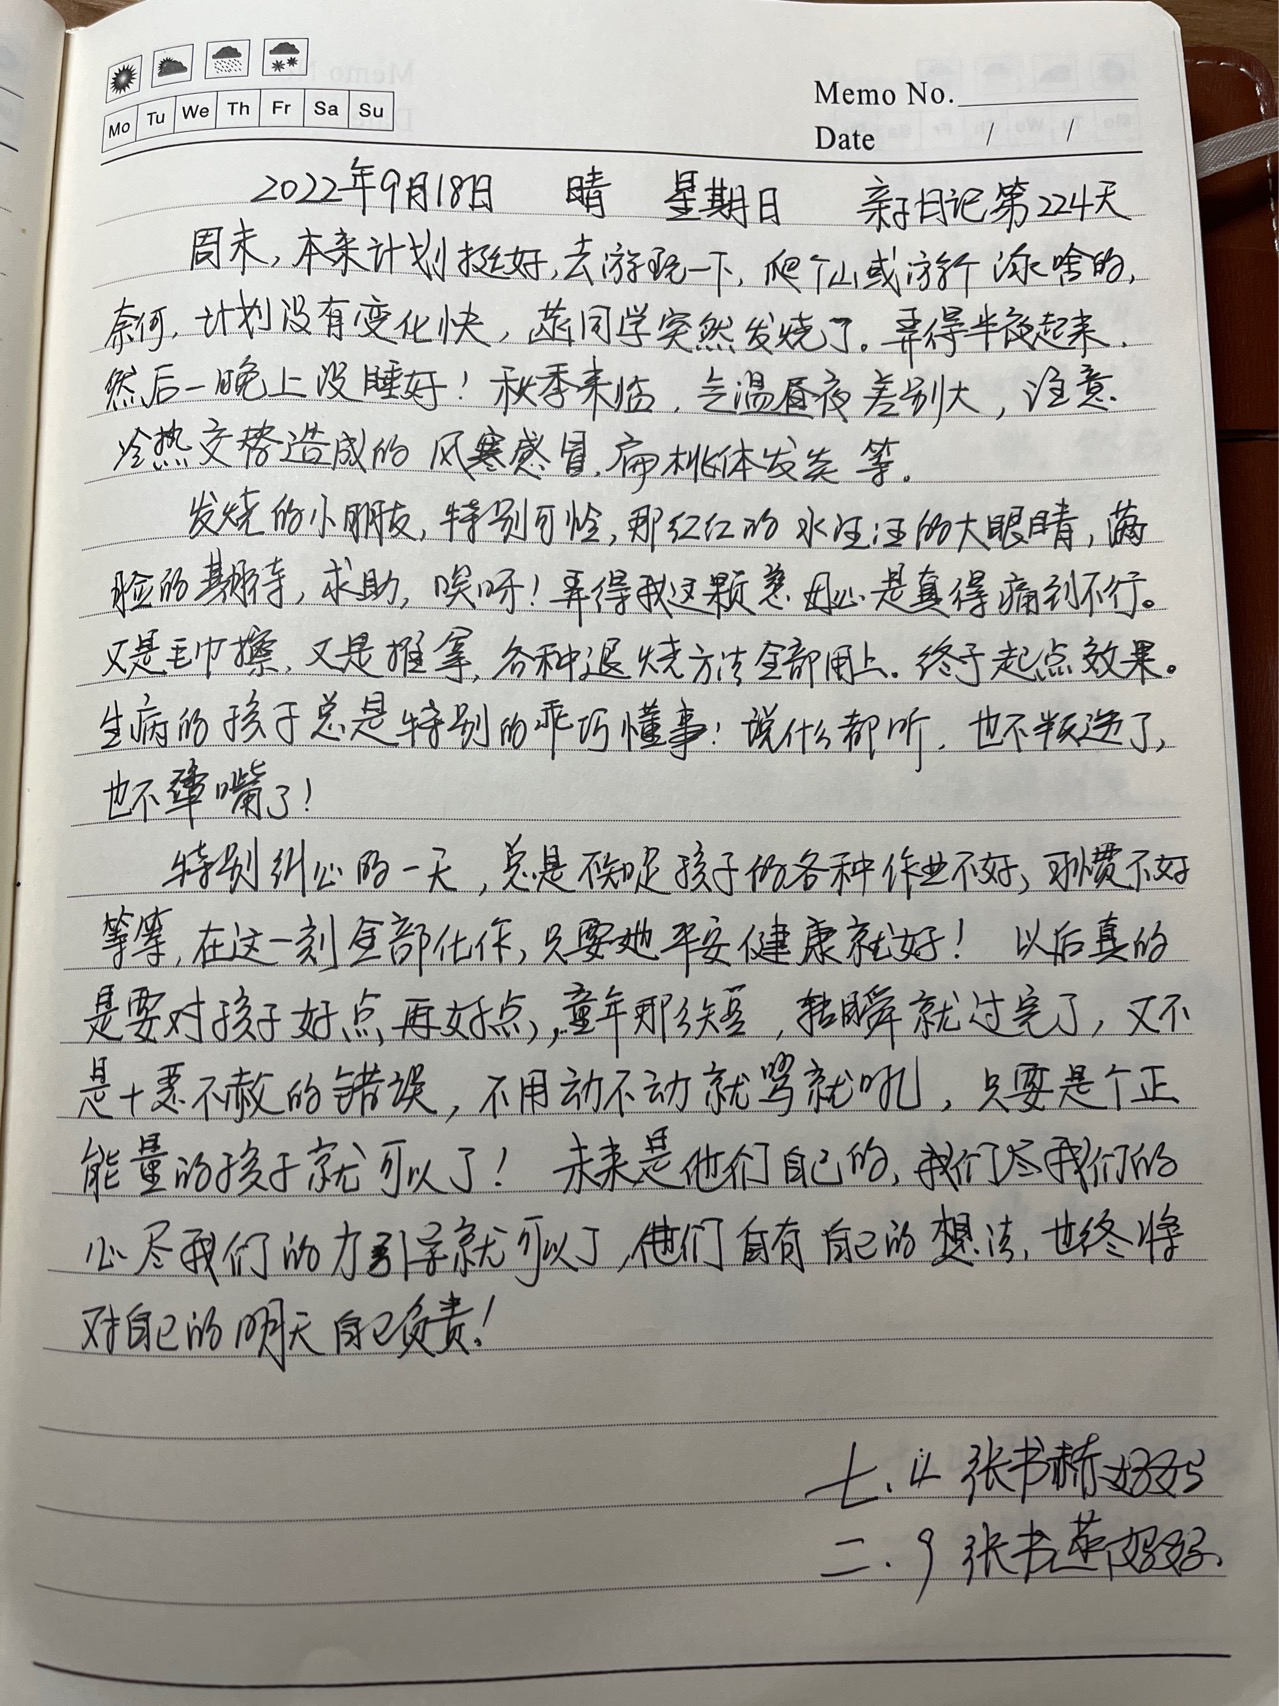 Mo Tu We Th Fr Sa Su
Memo No.
Date / /
2022年9月18日 晴 星期日 亲子日记第224天
周末,本来计划挺好,去游玩一下,爬个山或游个泳啥的,
奈何,计划没有变化快,菡同学突然发烧了。弄得半夜起来,
然后一晚上没睡好!秋季来临,气温昼夜差别大,注意
冷热交替造成的风寒感冒,扁桃体发炎等。
发烧的小朋友,特别可怜,那红红的水汪汪的大眼睛,满
脸的期待,求助,唉呀!弄得我这颗慈母心是真得痛到不行。
又是毛巾擦,又是推拿,各种退烧方法全部用上。终于起点效果。
生病的孩子总是特别的乖巧懂事!说什么都听,也不叛逆了,
也不犟嘴了!
特别纠心的一天,总是不知足孩子的各种作业不好,习惯不好
等等,在这一刻全部化作,只要她平安健康就好! 以后真的
是要对孩子好点,再好点,童年那么短,转瞬就过完了,又不
是十恶不赦的错误,不用动不动就骂就吼,只要是个正
能量的孩子就可以了! 未来是他们自己的,我们尽我们的
心尽我们的力引导就可以了,他们自有自己的想法,也终将
对自己的明天自己负责!
七.4 张书赫妈妈
二.9 张书菡妈妈